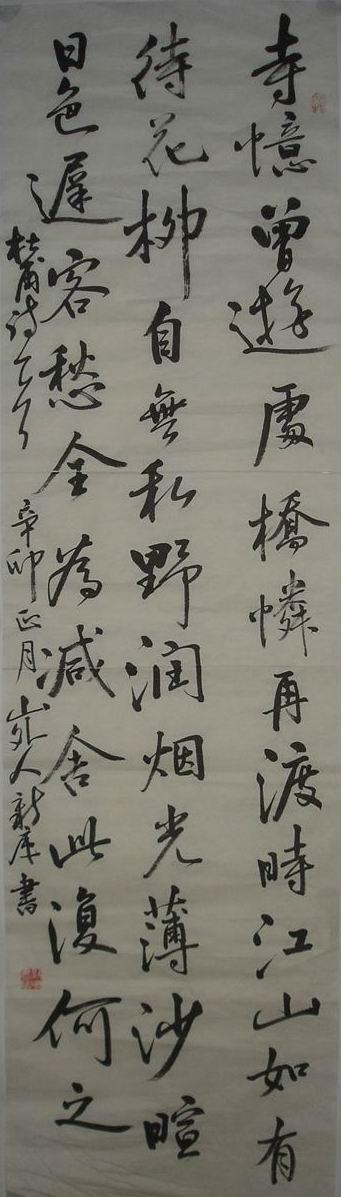 寺憶曾遊處橋憐再渡時江山如有
待花柳自無私野润烟光薄沙暄
日色遲客愁全為減舍此復何之
杜甫诗 辛卯正月 人新 書